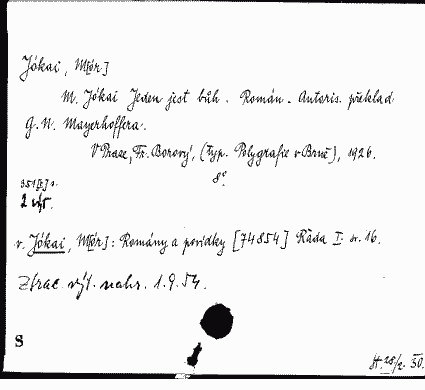 Jókai, M[ór]
M. Jókai Jeden jest bůh. Román. Autoris. překlad
G. N. Mayerhoffera.
V Praze, Fr. Borový, (typ. Polygrafie v Brně), 1926.
8°.
351 [1] s.
2 výt.
v. Jókai, M[ór]: Romány a povídky [74854] Řada I. sv. 16.
Ztrac. výt. nahr. 1.9.54.
S
H. 28/2. 30.